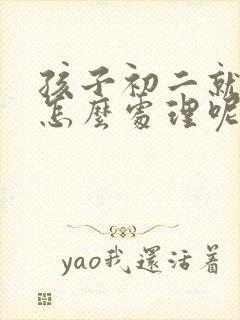 孩子初二就
怎麼處理呢
yao我還活着